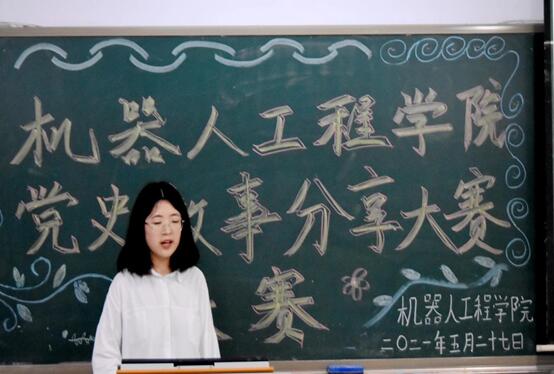 机器人工程学院
党史故事分享大赛
赛
机器人工程学院
二〇二1年五月二十七日